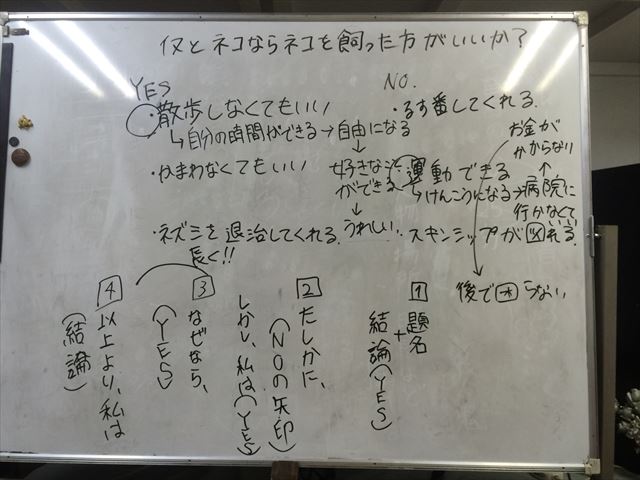 イヌとネコならネコを飼った方がいいか?
YES
・散歩しなくてもいい
↳自分の時間ができる→自由になる
↓
好きなことができる
↓
うれしい
・かまわなくてもいい
・ネズミを退治してくれる
長く!!
NO.
・るす番してくれる
・運動できる
↳けんこうになる→病院に行かなくていい
↑
お金がかからない
・スキンシップが図れる
↓
後で困らない
1 題名
+
結論(YES)
2 たしかに、
(NOの矢印)
しかし、私は(YES)
3 なぜなら、
(YES)
4 以上より、私は
(結論)